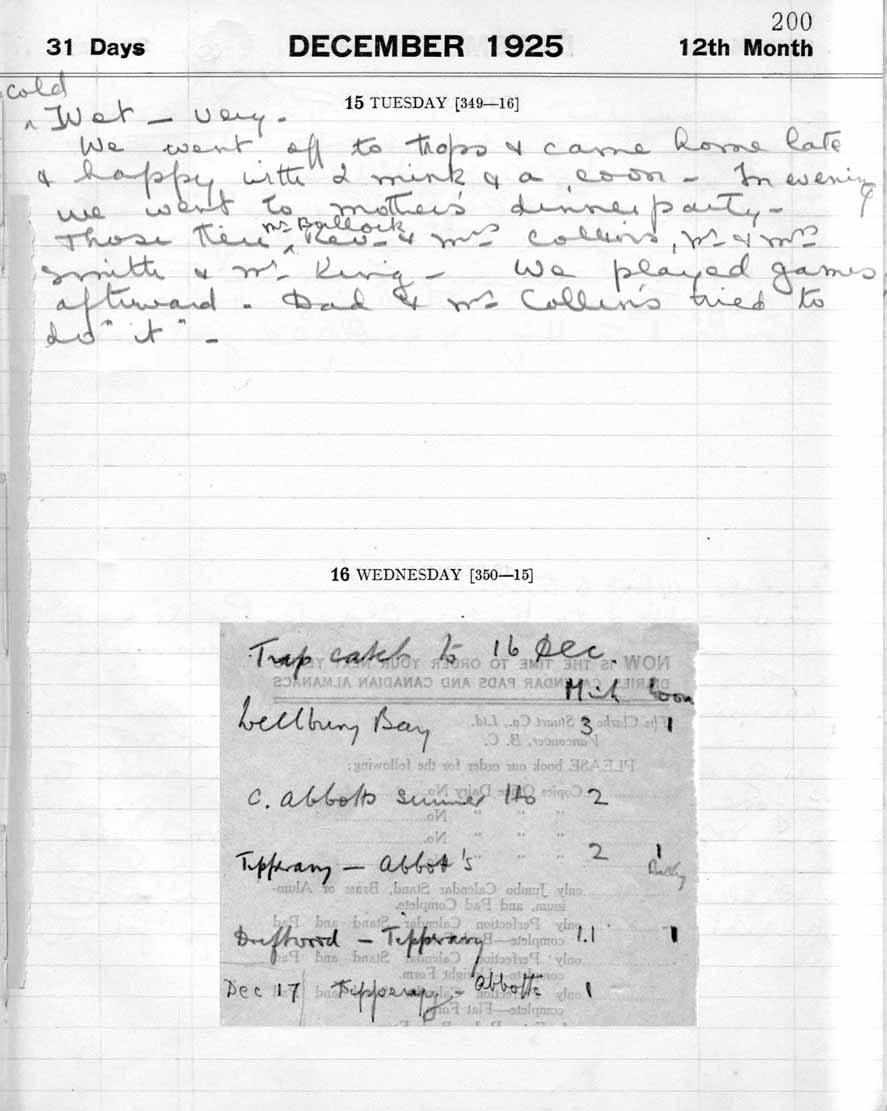 200
31 Days DECEMBER 1925 12th Month
15 TUESDAY [349—16]
cold
^ Wet — very.
We went off to traps & came home late
& happy with 2 mink & a coon - In evening
we went to mother's dinner party -
Mr Bullock
Those there ^ Rev. & Mrs Collins, Mr & Mrs
Smith & Mr King - We played games
afterward. Dad & Mrs Collins tried to
do "it" -
16 WEDNESDAY [350—15]
Trap catch to 16 Dec.
Mink Coon
Wellbury Bay 3 1
C. Abbotts summer Ho 2
Tipperary — Abbot's 2 1
Driftwood - Tipperary 1.1 1
Dec 17 Tipperary - Abbotts 1
NOW IS THE TIME TO ORDER YOUR NEXT YEAR'S
DIARIES, CALENDAR PADS AND CANADIAN ALMANACS
The Clarke & Stuart Co., Ltd.
Vancouver, B. C.
PLEASE book our order for the following:
Copies Office Dairy No.
" " No.
" " No.
" "
only Jumbo Calendar Stand, Brass or Alum-
inum, and Pad Complete.
only Perfection Calendar Stand and Pad
complete—
only Perfection Calendar Stand and Pad
complete—Upright Form.
only Perfection Calendar Stand and Pad
complete—Flat Form.